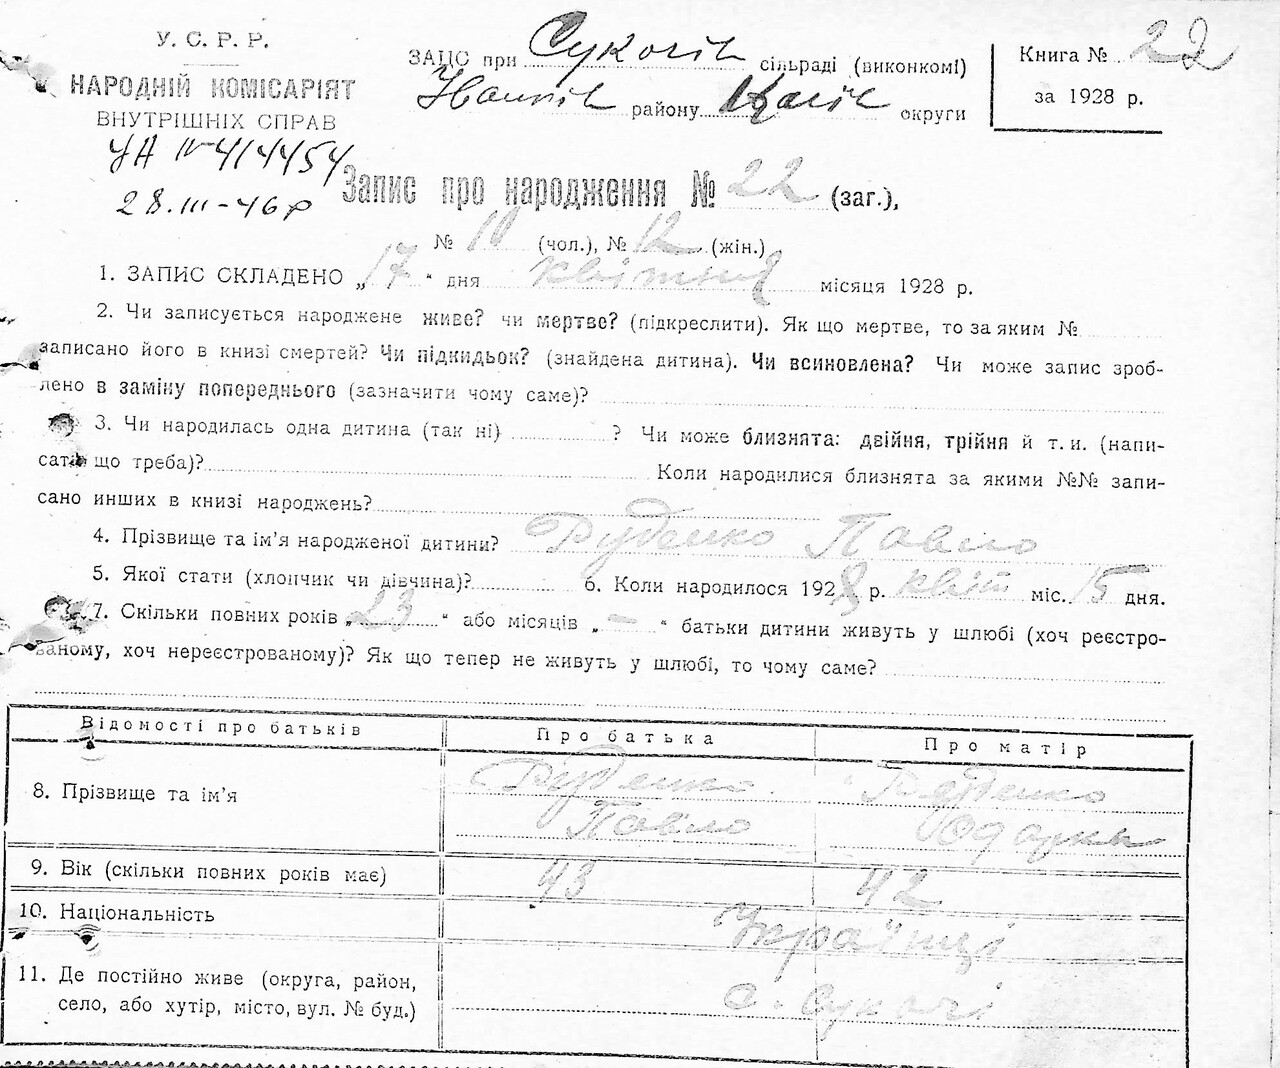 У. С. Р. Р.
НАРОДНІЙ КОМІСАРІЯТ
ВНУТРІШНІХ СПРАВ
УА IV-414454
28.III-46 р
ЗАЦС при Сукачів сільраді (виконкомі)
району округи
Книга № 22
за 1928 р.
Запис про народження № 22 (заг.),
№ 10 (чол.), № 12 (жін.)
1. ЗАПИС СКЛАДЕНО „17“ дня квітня місяця 1928 р.
2. Чи записується народжене живе? чи мертве? (підкреслити). Як що мертве, то за яким №
записано його в книзі смертей? Чи підкидьок? (знайдена дитина). Чи всиновлена? Чи може запис зроб-
лено в заміну попереднього (зазначити чому саме)?
3. Чи народилась одна дитина (так ні) ? Чи може близнята: двійня, трійня й т. и. (напи-
сати що треба)? Коли народилися близнята за якими №№ запи-
сано инших в книзі народжень?
4. Прізвище та ім’я народженої дитини? Руденко Павло
5. Якої стати (хлопчик чи дівчина)? 6. Коли народилося 1928 р. квіт міс. 15 дня.
7. Скільки повних років „23“ або місяців „—“ батьки дитини живуть у шлюбі (хоч реєстро-
ваному, хоч нереєстрованому)? Як що тепер не живуть у шлюбі, то чому саме?
Відомості про батьків Про батька Про матір
8. Прізвище та ім’я Руденко Павло Руденко
9. Вік (скільки повних років має) 43 42
10. Національність Українці
11. Де постійно живе (округа, район,
село, або хутір, місто, вул. № буд.) с. Сукачі